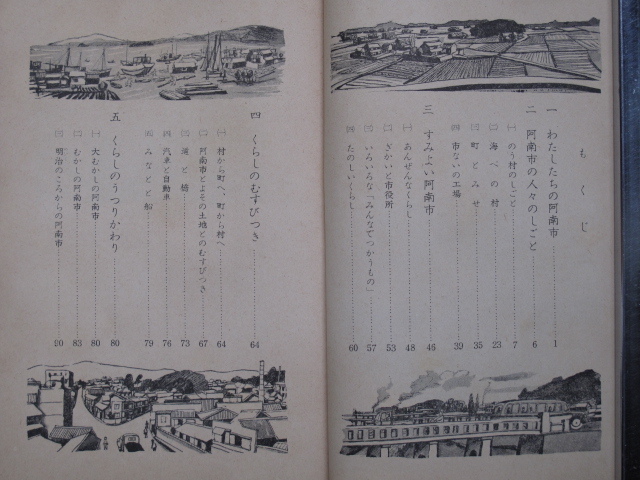 もくじ
一 わたしたちの阿南市……1
二 阿南市の人々のしごと……6
㈠ のう村のしごと……7
㈡ 海べの村……23
㈢ 町とみせ……35
㈣ 市ないの工場……39
三 すみよい阿南市……46
㈠ あんぜんなくらし……48
㈡ ぎかいと市役所……53
㈢ いろいろな「みんなでつかうもの」……57
㈣ たのしいくらし……60
四 くらしのむすびつき……64
㈠ 村から町へ、町から村へ……64
㈡ 阿南市とよその土地とのむすびつき……67
㈢ 道と橋……73
㈣ 汽車と自動車……76
㈤ みなとと船……79
五 くらしのうつりかわり……80
㈠ 大むかしの阿南市……80
㈡ むかしの阿南市……83
㈢ 明治のころからの阿南市……90